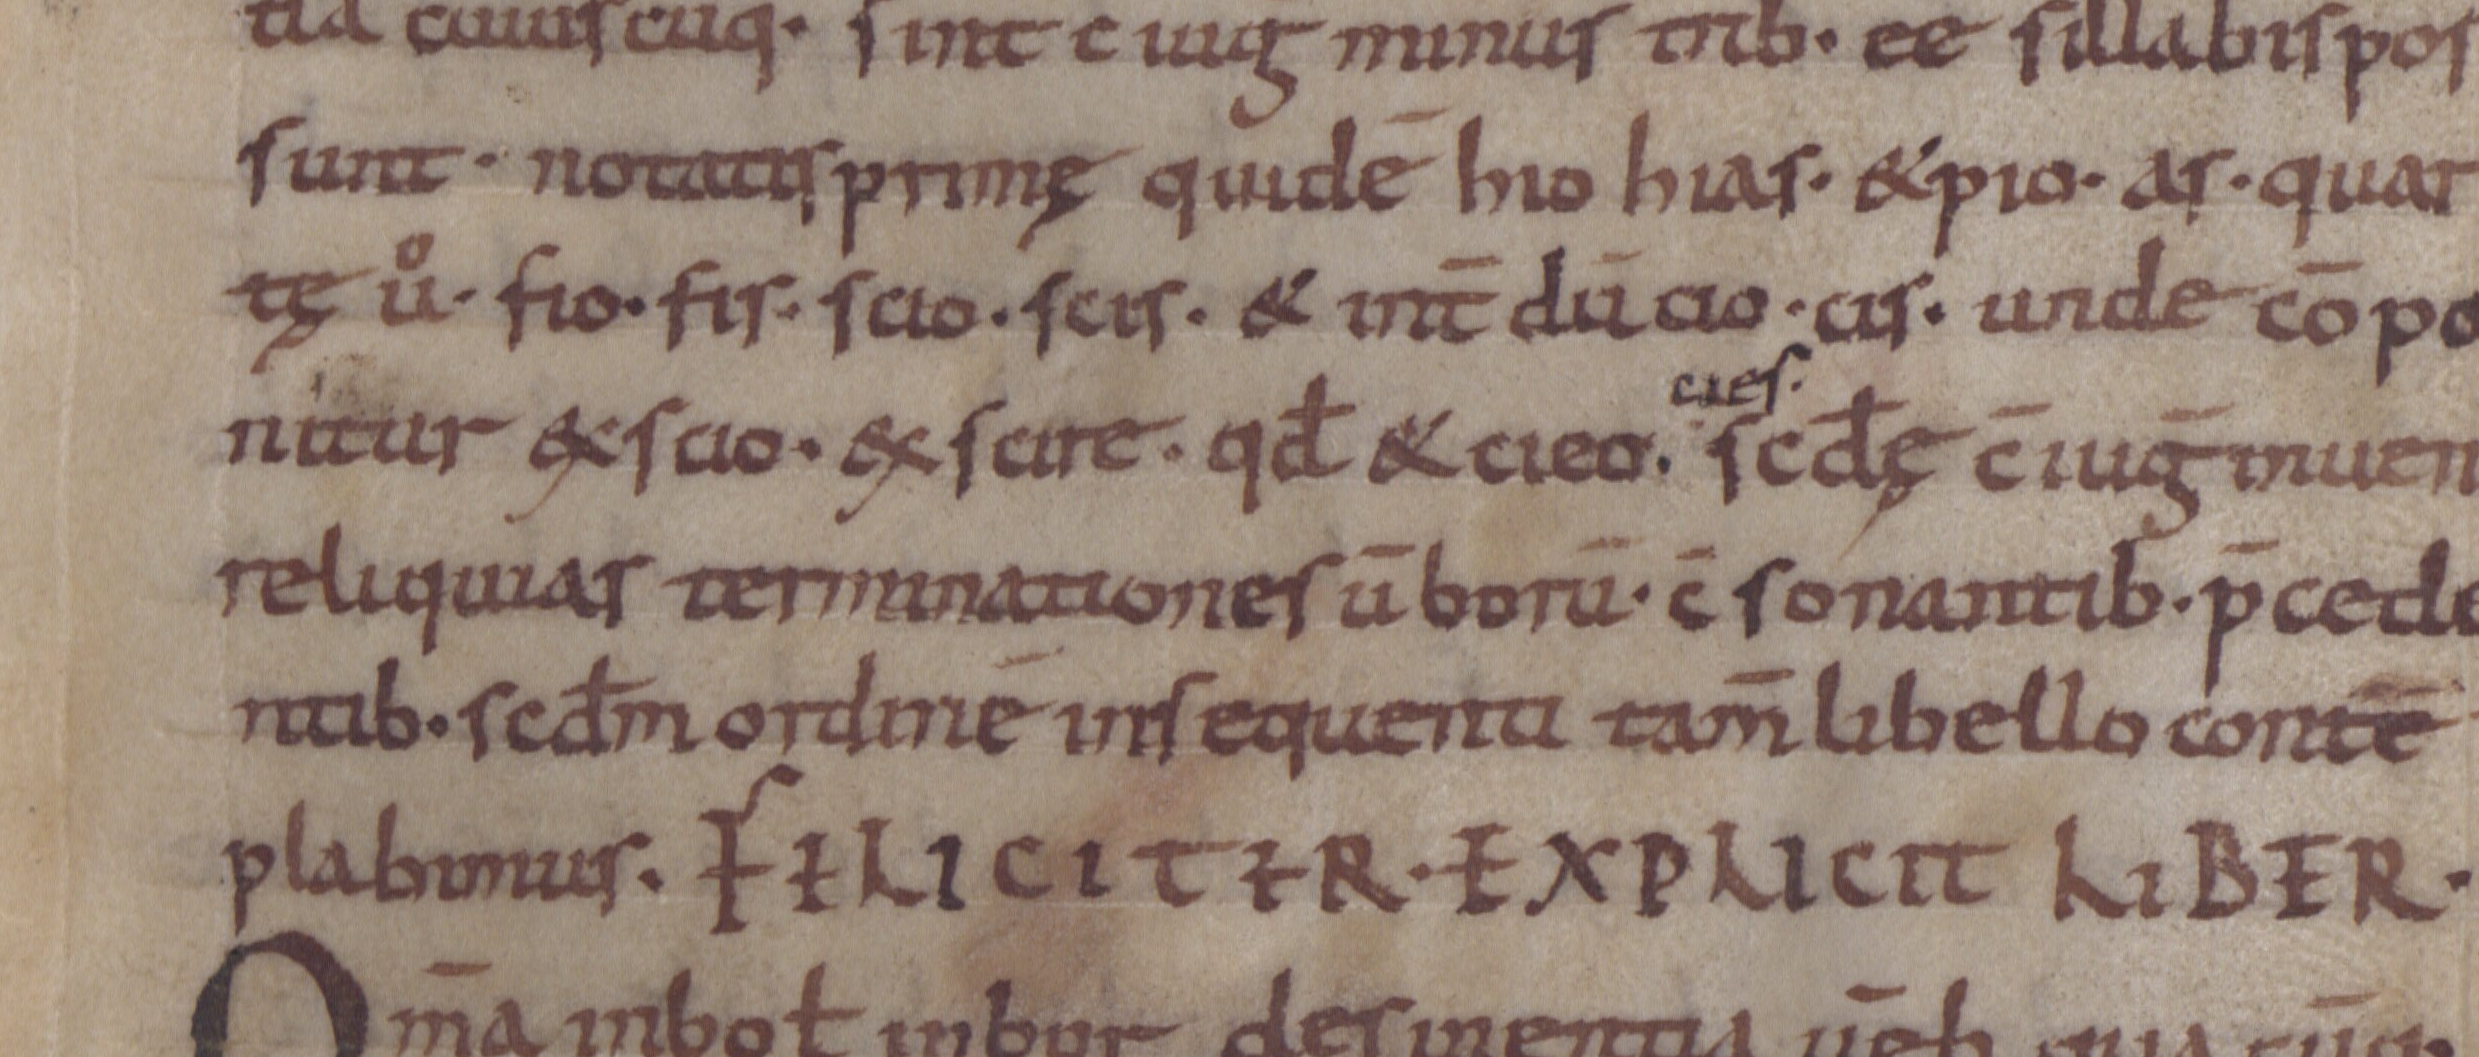 tia cuiuscuq· sint c̄ iug̅ minus trib· eē sillabis pos
sunt· notatis primę quidē hio hias· &pio· as· quar
tę uͦ· fio· fis· scio· scis· & int̄ dū cio· cis· unde cō po
nitur &scio· &scire· qđ & cieo· scđę c̄ iuḡ inuen
cies·
reliquias terminationes ūborū· c̄ sonantib· p̄cede
ntib· scđm ordinē insequenti tam̄ libello contē
plabimus· FELICITER· EXPLICIT LIBER·
Om̄a inbo ł inbor desinentia